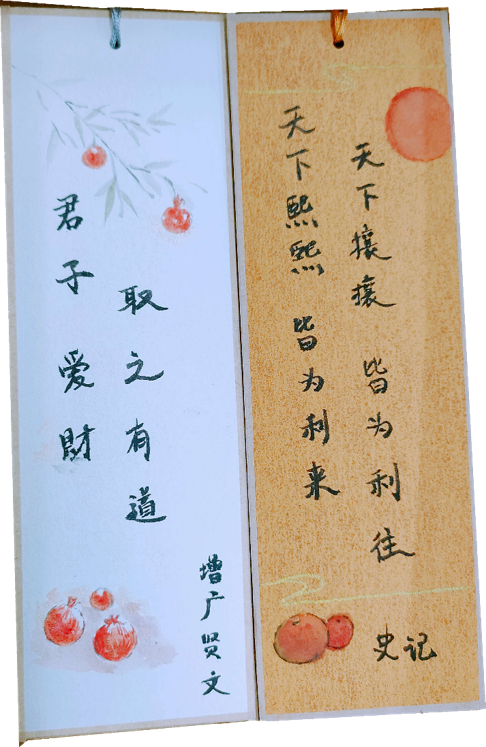 君子爱财
取之有道
增广贤文
天下熙熙 皆为利来
天下攘攘 皆为利往
史记